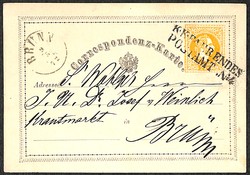 BRÜNN
KEHRENDES
POSTAMT No.
Correspondenz-Karte.
Adresse
S. Wohlg. Herrn
J. U. D. Josef v. Weinlich
Krautmarkt in
Brünn